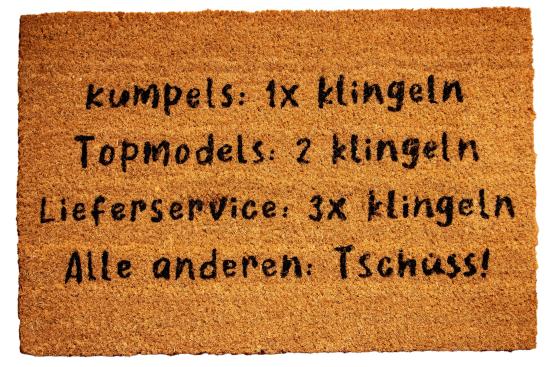 Kumpels: 1x klingeln
Topmodels: 2 klingeln
Lieferservice: 3x klingeln
Alle anderen: Tschuss!